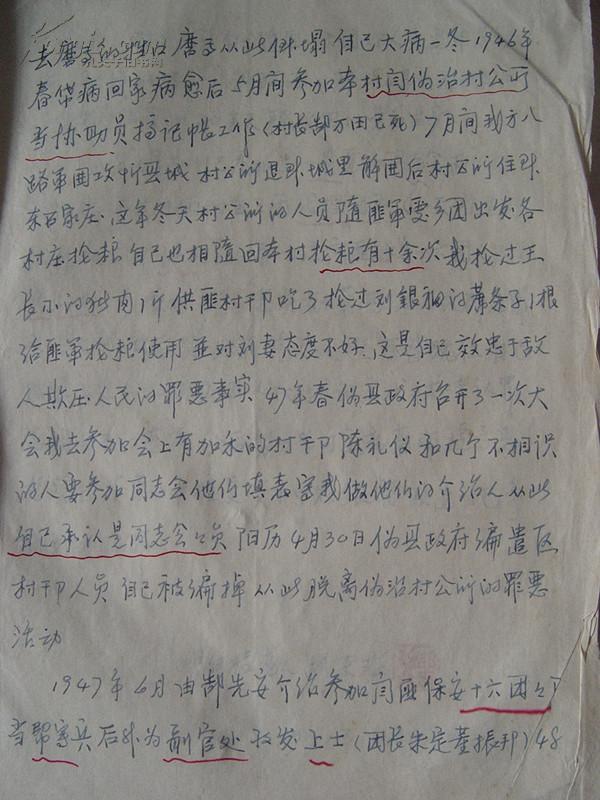 磨 从此倒塌 自己大病一冬 1946年
春带病回家病愈后 5月间参加本村闫伪治村公所
当协助员搞记帐工作(村长郜万田已死)7月间我方八
路军围攻忻县城 村公所退到城里解围后村公所住到
东石家庄 这年冬天村公所的人员随匪军要乡团出发各
村庄抢粮 自己也相随回本村抢粮有十余次 我抢过王
长小的猪肉1斤供匪村干部吃了 抢过刘银祖的 条子1根
给匪军抢粮使用 并对刘妻态度不好 这是自己效忠于敌
人欺压人民的罪恶事实 47年春伪县政府召开了一次大
会我去参加会上有加禾的村干部陈礼仪和几个不相识
的人要参加同志会他们填表写我做他们的介绍人从此
自己承认是同志会会员 阳历4月30日伪县政府编遣区
村干部人员 自己被编掉 从此脱离伪治村公所的罪恶
活动
1947年6月由郜先安介绍参加闫匪保安十六团
当帮写兵后升为副官处收发上士(团长朱定 董振邦)48